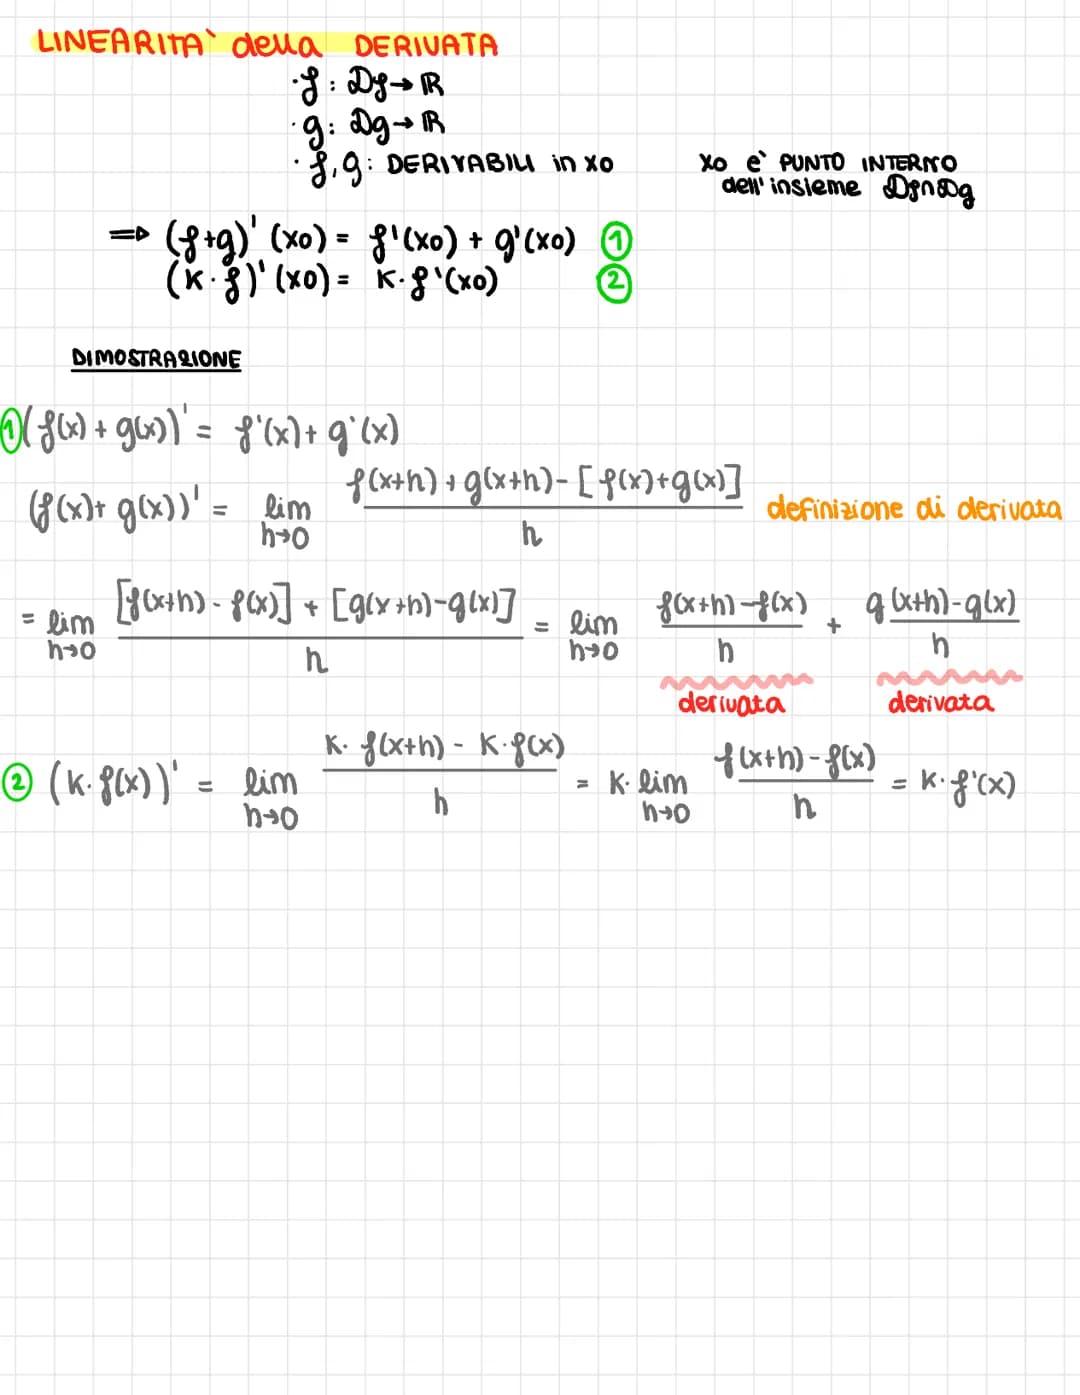 LINEARITA` della DERIVATA
·f: Df→ℝ
·g: Dg→ℝ
·f,g: DERIVABILI in x0
x0 e` PUNTO INTERNO
dell'insieme Df∩Dg
⇒ (f+g)'(x0) = f'(x0) + g'(x0) ①
(K·f)'(x0) = K·f'(x0) ②
DIMOSTRAZIONE
① (f(x)+g(x))' = f'(x)+g'(x)
(f(x)+g(x))' = lim h→0 f(x+h)+g(x+h)-[f(x)+g(x)] / h definizione di derivata
= lim h→0 [f(x+h)-f(x)]+[g(x+h)-g(x)] / h = lim h→0 f(x+h)-f(x) / h + g(x+h)-g(x) / h
derivata derivata
② (K·f(x))' = lim h→0 K·f(x+h)-K·f(x) / h = K·lim h→0 f(x+h)-f(x) / h = K·f'(x)